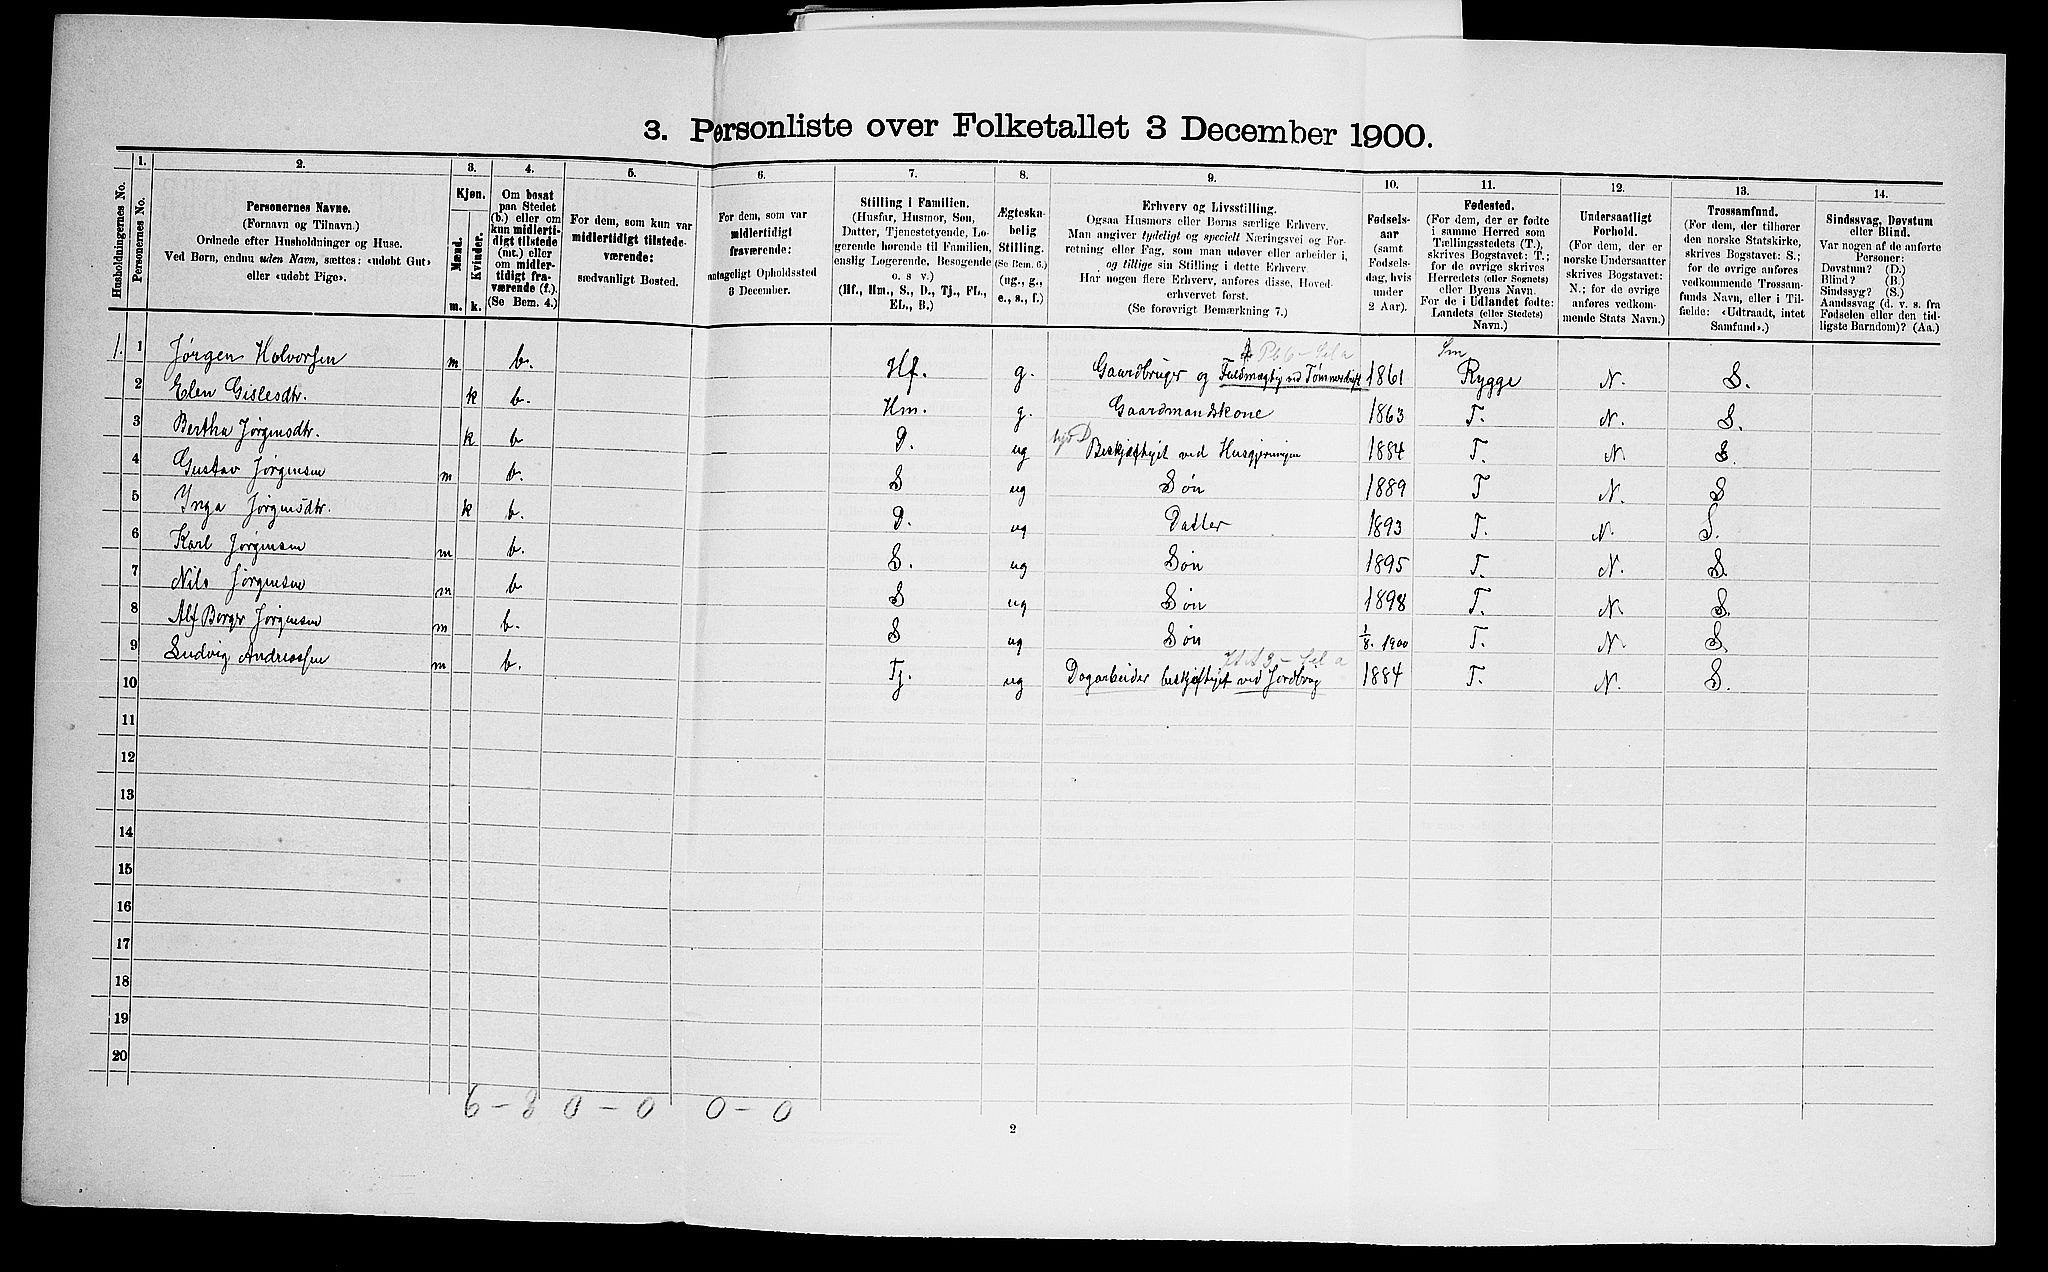 3. Personliste over Folketallet 3 December 1900.
1. 2. 3. 4. 5. 6. 7. 8. 9. 10. 11. 12. 13. 14.
Husholdningernes No.
Personernes No.
Personernes Navne.
(Fornavn og Tilnavn.)
Ordnede efter Husholdninger og Huse.
Ved Børn, endnu uden Navn, sættes: «udøbt Gut»
eller «udøbt Pige».
Kjøn.
Mænd.
Kvinder.
m. k.
Om bosat
paa Stedet
(b.) eller om
kun midlerti-
digt tilstede
(mt.) eller
om midler-
tidigt fra-
værende (f.).
(Se Bem. 4.)
For dem, som kun var
midlertidigt tilstede-
værende:
sædvanligt Bosted.
For dem, som var
midlertidigt
fraværende:
antageligt Opholdssted
3 December.
Stilling i Familien.
(Husfar, Husmor, Søn,
Datter, Tjenestetyende, Lo-
gerende hørende til Familien,
enslig Logerende, Besøgende
o. s v.)
(Hf., Hm., S., D., Tj., FL.,
EL., B.)
Ægteska-
belig
Stilling.
(Se Bem. 6.)
(ug., g.,
e., s., f.)
Erhverv og Livsstilling.
Ogsaa Husmors eller Børns særlige Erhverv.
Man angiver tydeligt og specielt Næringsvei og For-
retning eller Fag, som man udøver eller arbeider i,
og tillige sin Stilling i dette Erhverv.
Har nogen flere Erhverv, anføres disse, Hoved-
erhvervet først.
(Se forøvrigt Bemærkning 7.)
Fødsels-
aar
(samt
Fødsels-
dag, hvis
under
2 Aar).
Fødested.
(For dem, der er fødte
i samme Herred som
Tællingsstedets (T.),
skrives Bogstavet: T.;
for de øvrige skrives
Herredets (eller Sognets)
eller Byens Navn.
For de i Udlandet fødte:
Landets (eller Stedets)
Navn.)
Undersaatligt
Forhold.
(For dem, der er
norske Undersaatter
skrives Bogstavet:
N.; for de øvrige
anføres vedkom-
mende Stats Navn.)
Trossamfund.
(For dem, der tilhører
den norske Statskirke,
skrives Bogstavet: S.;
for de øvrige anføres
vedkommende Trossam-
funds Navn, eller i Til-
fælde: «Udtraadt, intet
Samfund».)
Sindssvag, Døvstum
eller Blind.
Var nogen af de anførte
Personer:
Døvstum? (D.)
Blind? (B.)
Sindssyg? (S.)
Aandssvag (d. v. s. fra
Fødselen eller den tid-
ligste Barndom)? (Aa.)
1. 1 Jørgen Halvorsen m b. Hf. g. Gaardbruger og Fuldmægtig ved Tømmerdrift 1861 Sm Rygge N. S.
2 Elen Gislesdtr. k b. Hm. g. Gaardmandskone 1863 T. N. S.
3 Bertha Jørgensdtr. k b D. ug Beskjæftiget ved Husgjerningen 1884 T. N. S.
4 Gustav Jørgensen m b. S ug Søn 1889 T N. S
5 Inga Jørgensdtr. k b. D. ug Datter 1893 T. N. S.
6 Karl Jørgensen m b. S. ug Søn 1895 T. N. S.
7 Nils Jørgensen m b S ug Søn 1898 T. N. S.
8 Alf Borger Jørgensen m b. S ug Søn 1/8. 1900 T. N. S.
9 Ludvig Andreassen m b. Tj. ug Dagarbeider beskjæftiget ved Jordbrug 1884 T. N. S.
10
11
12
13
14
15
16
17
18
19
20
6 - 3 0 - 0 0 - 0
2